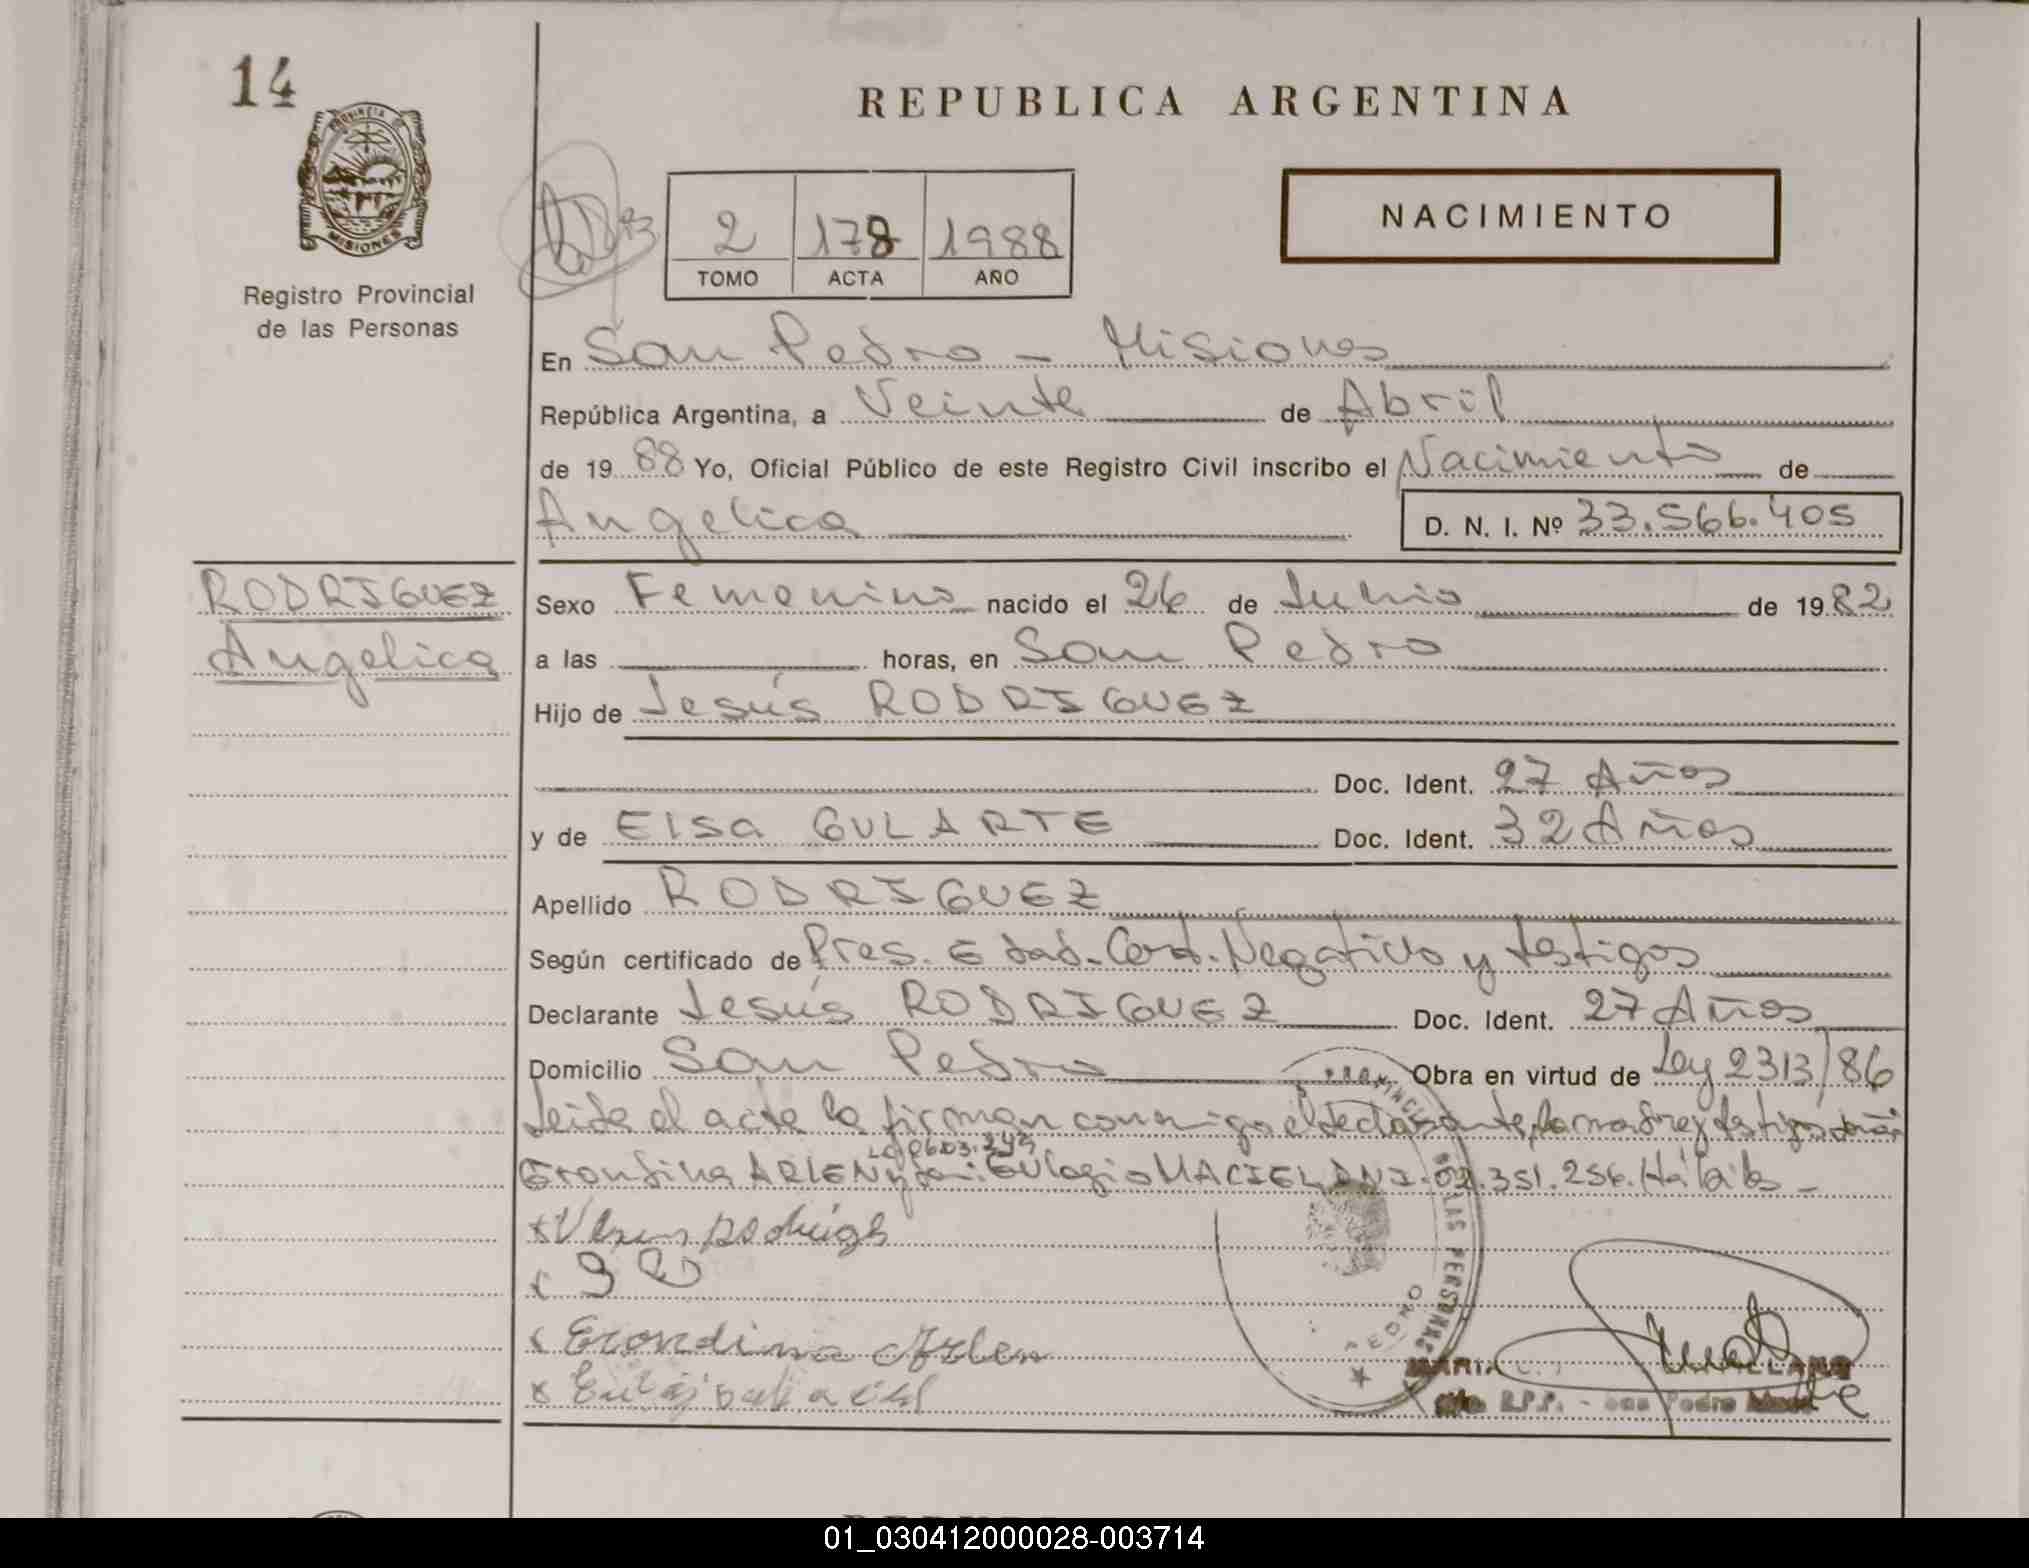 14
REPUBLICA ARGENTINA
PROVINCIA DE
MISIONES
Registro Provincial
de las Personas
2 178 1988
TOMO ACTA AÑO
NACIMIENTO
En San Pedro - Misiones
República Argentina, a Veinte de Abril
de 1988 Yo, Oficial Público de este Registro Civil inscribo el Nacimiento de
Angelica D. N. I. Nº 33.566.405
RODRIGUEZ
Angelica
Sexo Femenino nacido el 26 de Junio de 1982
a las horas, en San Pedro
Hijo de Jesús RODRIGUEZ
Doc. Ident. 27 Años
y de Elsa GULARTE Doc. Ident. 32 Años
Apellido RODRIGUEZ
Según certificado de Pres. Edad. Cert. Negativo y testigos
Declarante Jesús RODRIGUEZ Doc. Ident. 27 Años
Domicilio San Pedro Obra en virtud de Ley 2313/86
Leida el acta la firman conmigo el declarante, la madre y testigos
Erondina ARLEN y Eulogio MACIEL DNI. 02.351.256. Hábiles -
LAS PERSONAS
PEDRO
Erondina Arlen
MARIA
R.P.P. - San Pedro
01_030412000028-003714